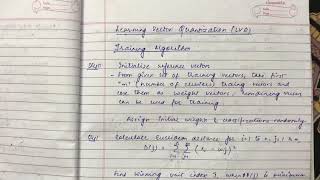 Learning Vector Quantization (LVQ)
Training Algorithm
Initialize reference vector
- From given set of training vectors, take first
"m" (number of clusters) training vectors and
use them as weight vectors, remaining vectors
can be used for training.
Assign initial weights & classifications randomly
Calculate Euclidean distance for i=1 to n, j=1 to m
D(j) = Σ Σ (xi - wij)²
Find winning unit index J, when D(J) is minimum